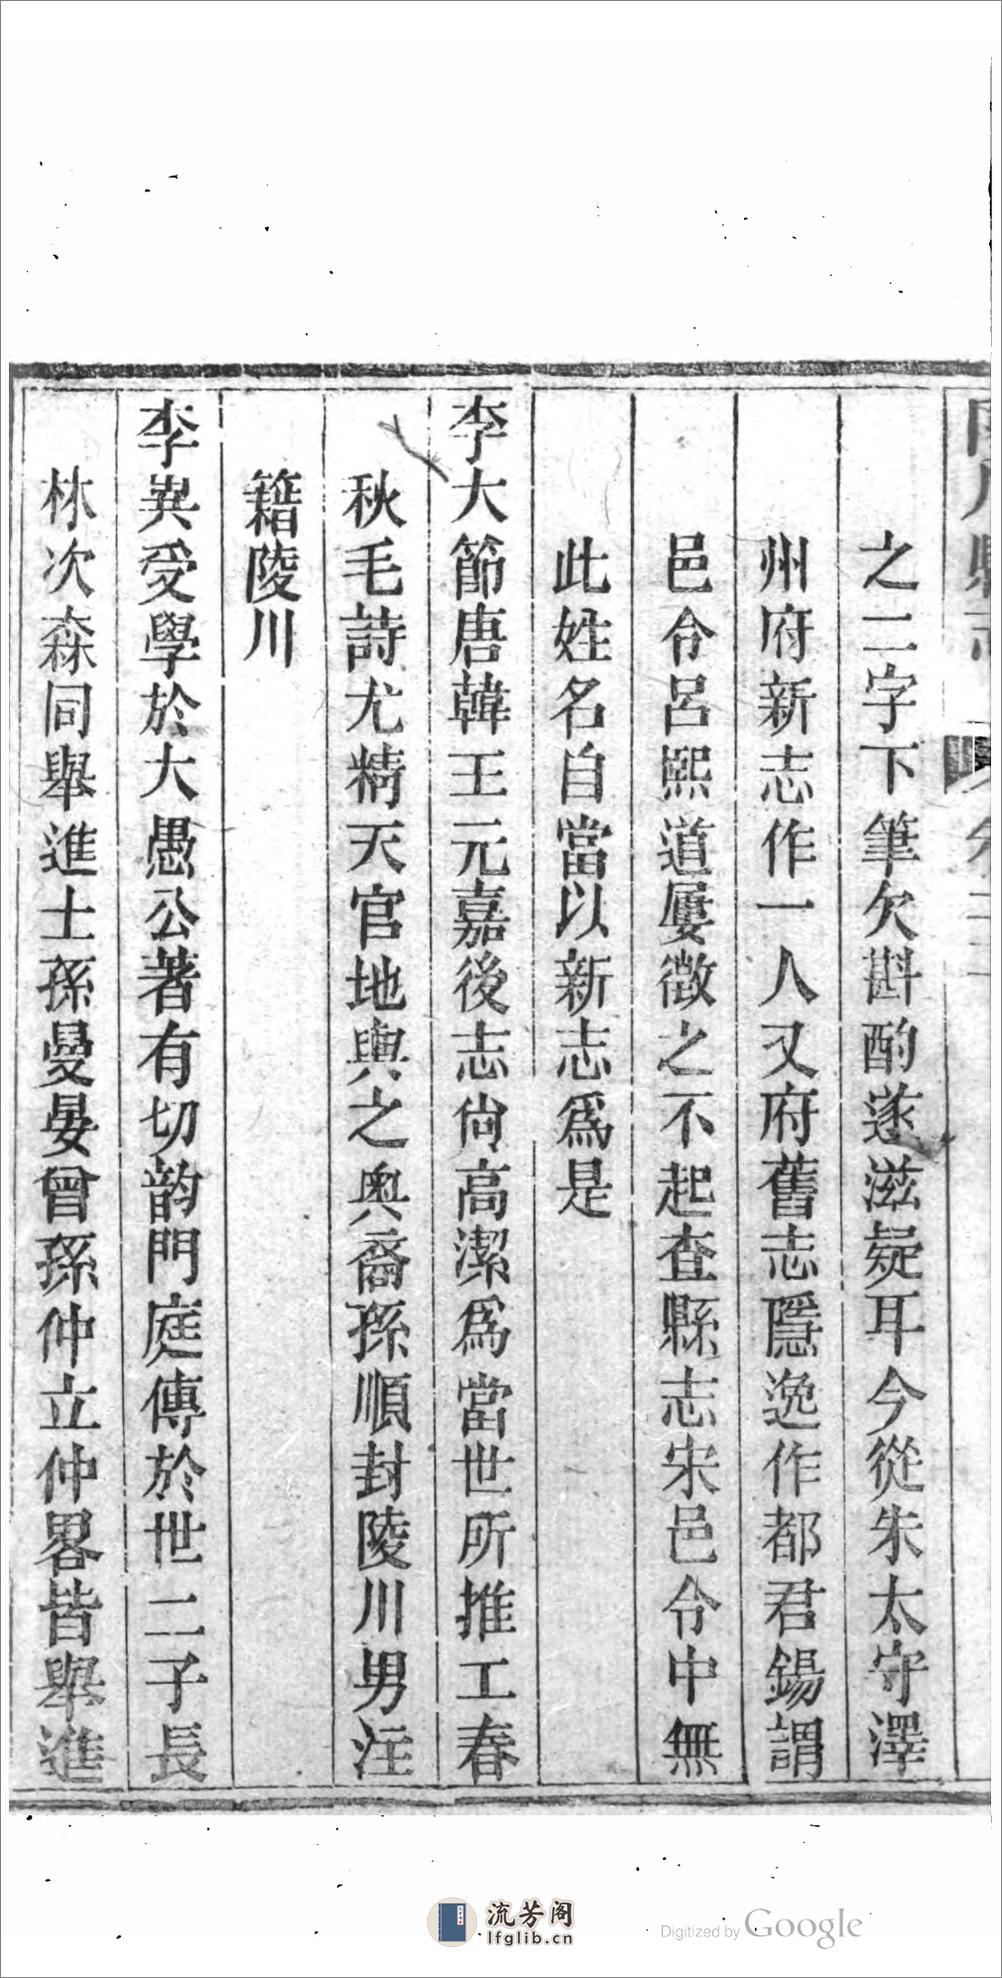 之二字下筆欠斟酌遂滋疑耳今從朱太守澤
州府新志作一人又府舊志隱逸作都君錫謂
邑令呂熙道屢徵之不起查縣志宋邑令中無
此姓名自當以新志爲是
李大節唐韓王元嘉後志尙高潔爲當世所推工春
秋毛詩尤精天官地輿之奧裔孫順封陵川男注
籍陵川
李異受學於大愚公著有切韵門庭傳於世二子長
林次森同舉進士孫曼晏曾孫仲立仲畧皆舉進
流芳阁
lfglib.cn
Digitized by Google